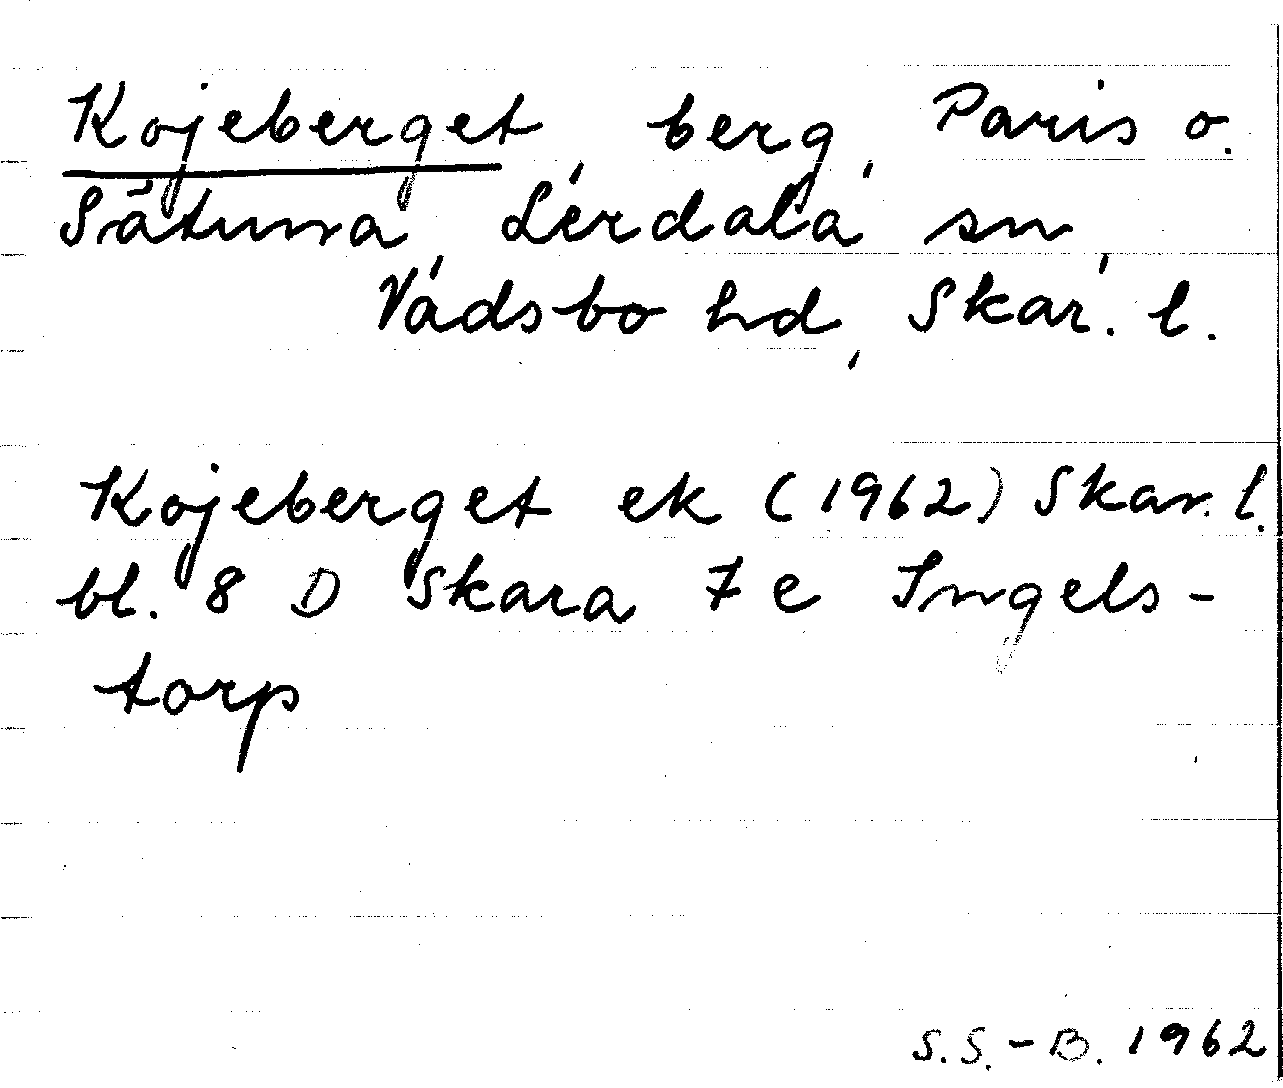 Kojeberget, berg, Paris o.
Sätuna, Lerdala sn,
Vadsbo hd, Skar. l.
Kojeberget ek (1962) Skar. l.
bl. 8 D Skara 7 e Ingels-
torp
S.S.-B. 1962